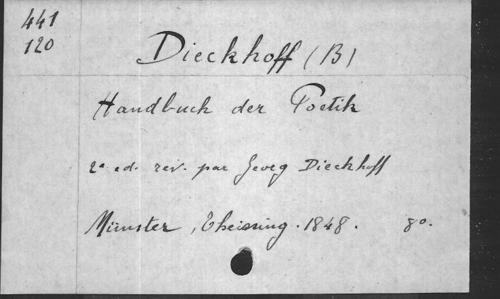 441
120
Dieckhoff (B)
Handbuch der Poetik
2a ed. rev. par Georg Dieckhoff
Münster, Theissing. 1848. 8o.